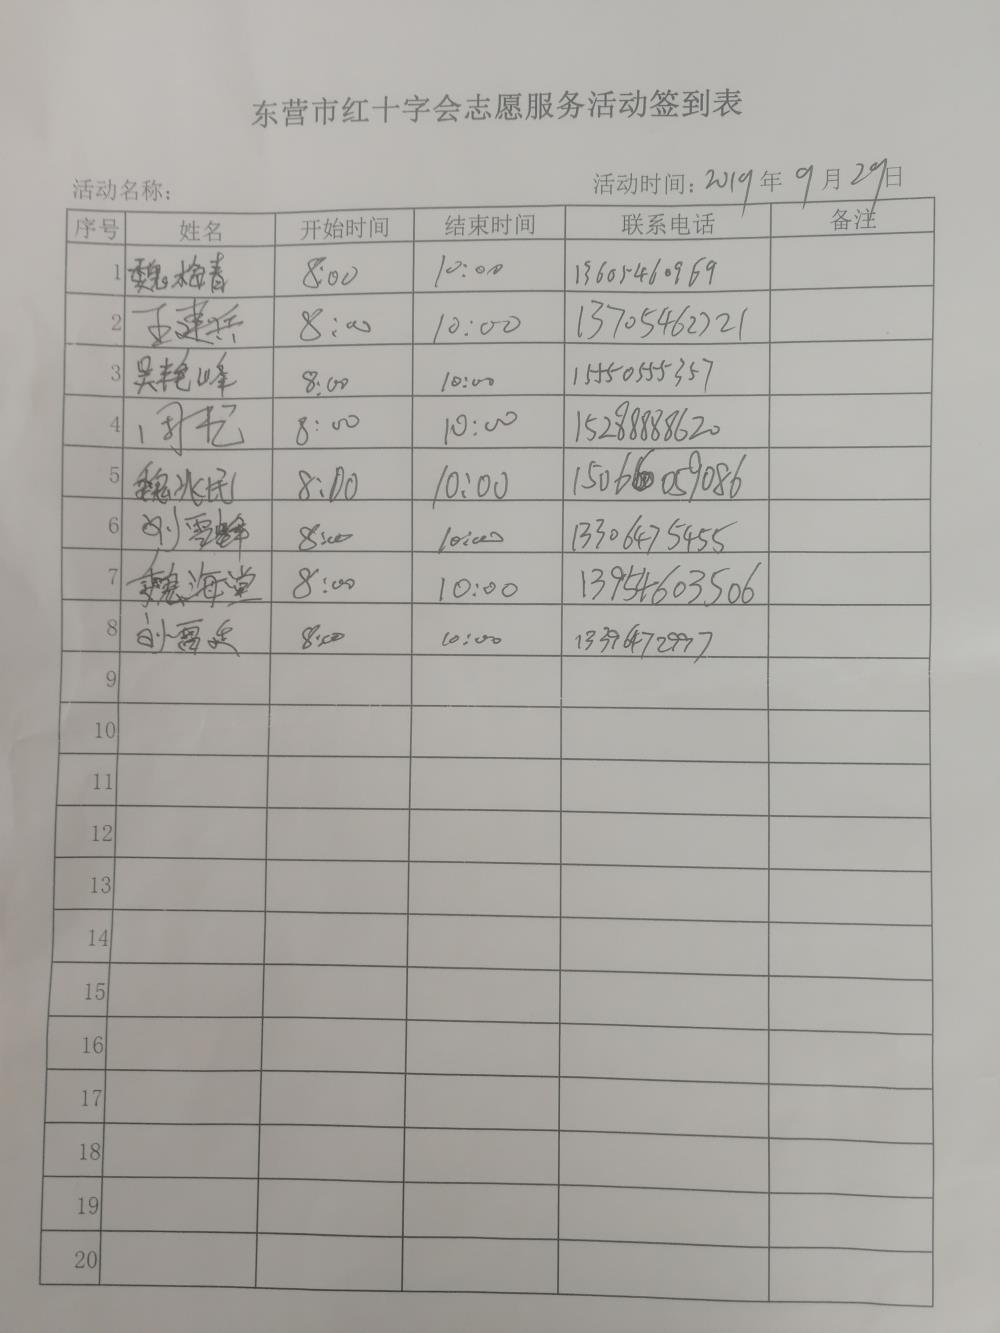 东营市红十字会志愿服务活动签到表
活动名称: 活动时间: 2019 年 9 月 29 日
序号 姓名 开始时间 结束时间 联系电话 备注
1 魏梅青 8:00 10:00 13605460969
2 王建兵 8:00 10:00 13705462221
3 吴艳峰 8:00 10:00 15550555357
4 周忆 8:00 10:00 15288888620
5 魏兆民 8:00 10:00 15066059086
6 刘雪峰 8:00 10:00 13306475455
7 魏海堂 8:00 10:00 13954603506
8 8:00 10:00
9
10
11
12
13
14
15
16
17
18
19
20